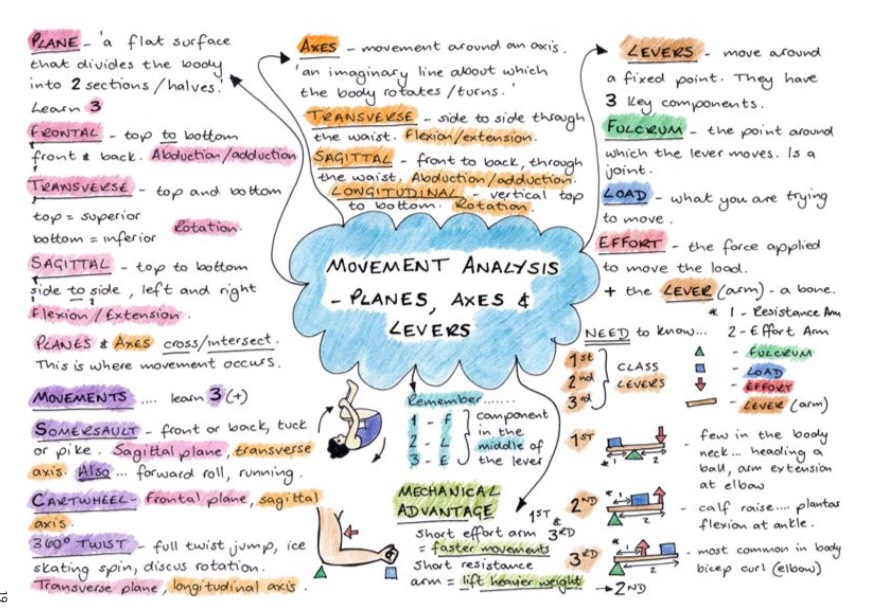 PLANE - 'a flat surface
that divides the body
into 2 sections/halves.'
Learn 3
FRONTAL - top to bottom
front & back. Abduction/adduction
TRANSVERSE - top and bottom
top = superior
bottom = inferior
Rotation.
SAGITTAL - top to bottom
side to side, left and right
Flexion/Extension.
PLANES & AXES cross/intersect.
This is where movement occurs.
MOVEMENTS .... learn 3 (+)
SOMERSAULT - front or back, tuck
or pike. Sagittal plane, transverse
axis. Also ... forward roll, running.
CARTWHEEL - frontal plane, sagittal
axis.
360° TWIST - full twist jump, ice
skating spin, discus rotation.
Transverse plane, longitudinal axis.
AXES - movement around an axis.
'an imaginary line about which
the body rotates/turns.'
TRANSVERSE - side to side through
the waist. Flexion/extension.
SAGITTAL - front to back, through
the waist. Abduction/adduction.
LONGITUDINAL - vertical top
to bottom. Rotation.
MOVEMENT ANALYSIS
- PLANES, AXES &
LEVERS
Remember.......
1 - F
2 - L
3 - E
component
in the
middle of
the lever
MECHANICAL
ADVANTAGE
1ST &
3RD
short effort arm
= faster movements
short resistance
arm = lift heavier weight
→ 2ND
LEVERS - move around
a fixed point. They have
3 key components.
FULCRUM - the point around
which the lever moves. Is a
joint.
LOAD - what you are trying
to move.
EFFORT - the force applied
to move the load.
+ the LEVER (arm) - a bone.
* 1 - Resistance Arm
NEED to know... 2 - Effort Arm
1st
2nd
3rd
CLASS
LEVERS
- FULCRUM
- LOAD
- EFFORT
- LEVER (arm)
1ST
* 1 2
- few in the body
neck... heading a
ball, arm extension
at elbow
2ND
* 1
2
- calf raise.... plantar
flexion at ankle.
3RD
* 1
2
- most common in body
bicep curl (elbow)
19